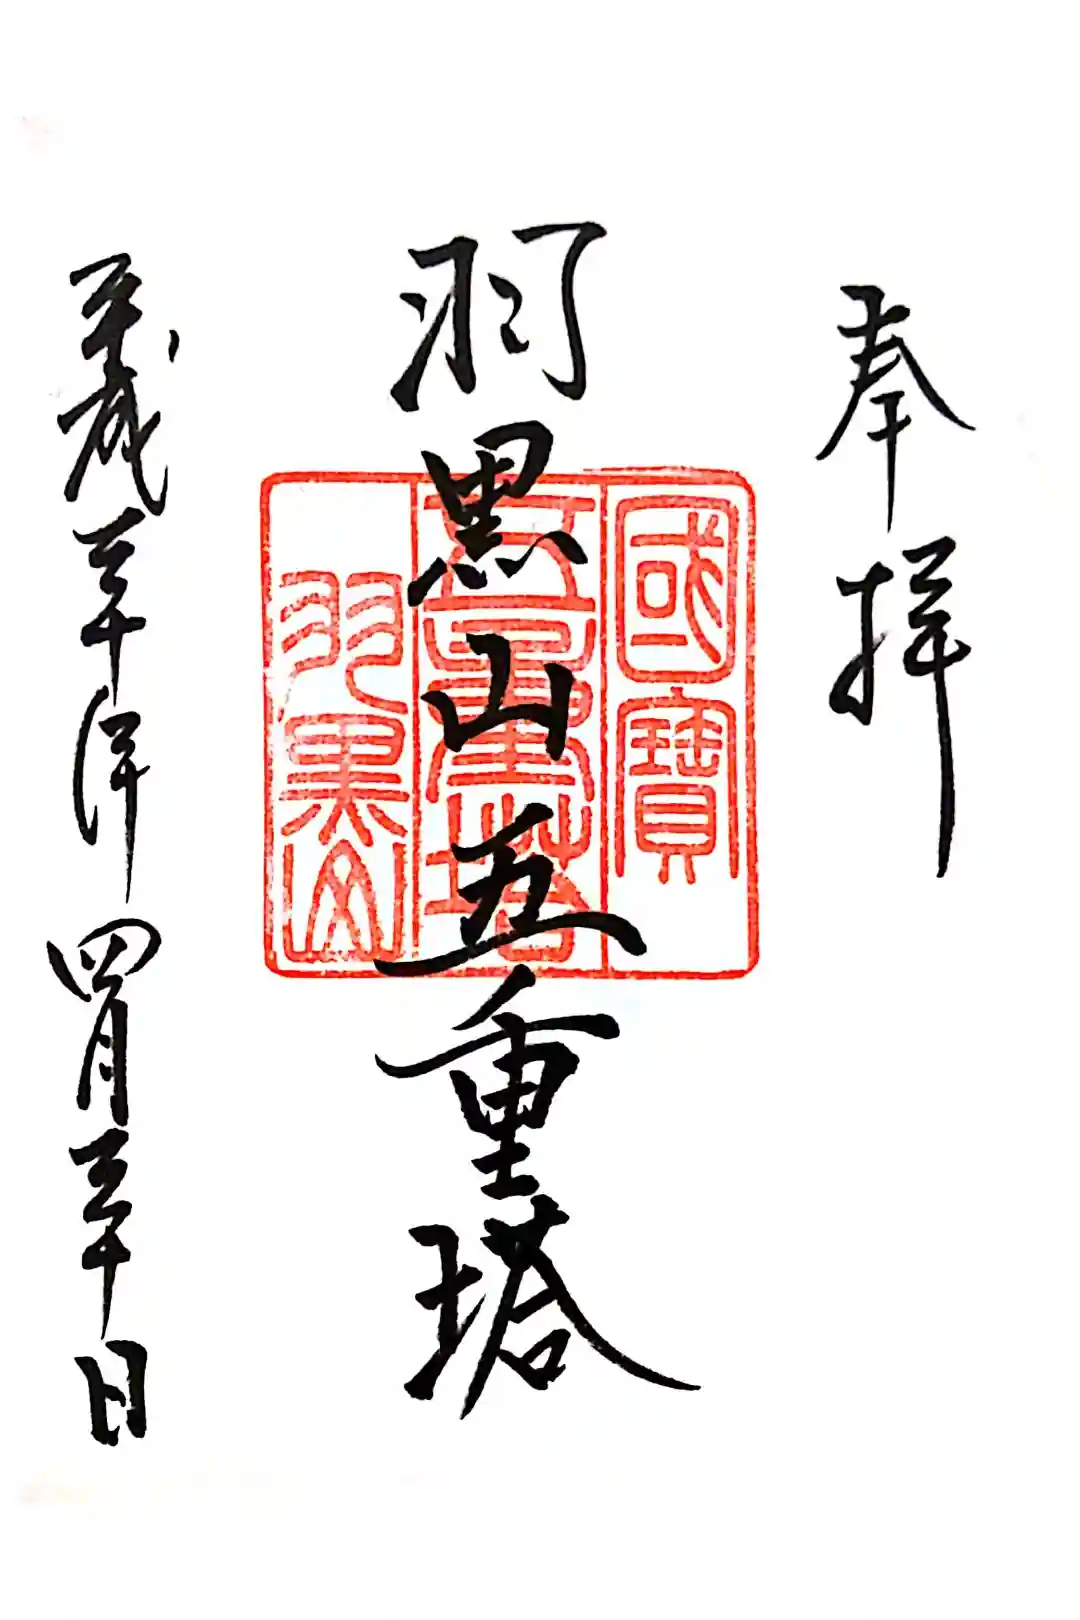 奉拝
羽黒山五重塔
平成三十年四月三十日
國寶
五重塔
羽黒山